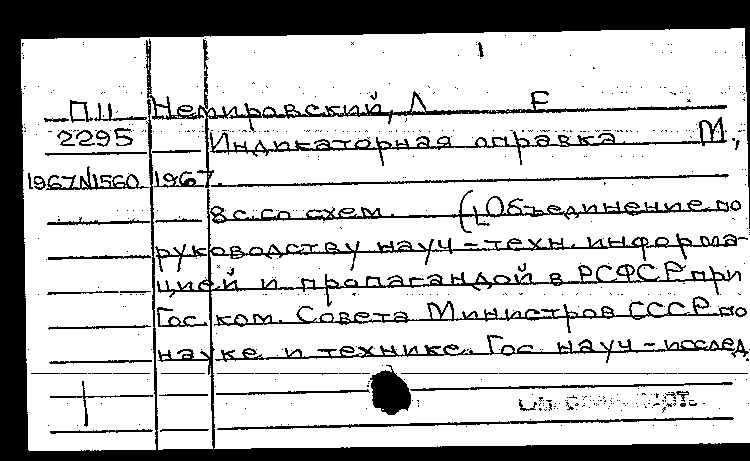 П11 Немировский, Л Е
2295 Индикаторная оправка М,
1967N1560 1967.
8 с. со схем. ([Объединение по
руководству науч-техн. информа-
цией и пропагандой в РСФСР при
Гос. ком. Совета Министров СССР по
науке и технике. Гос. науч-исслед.